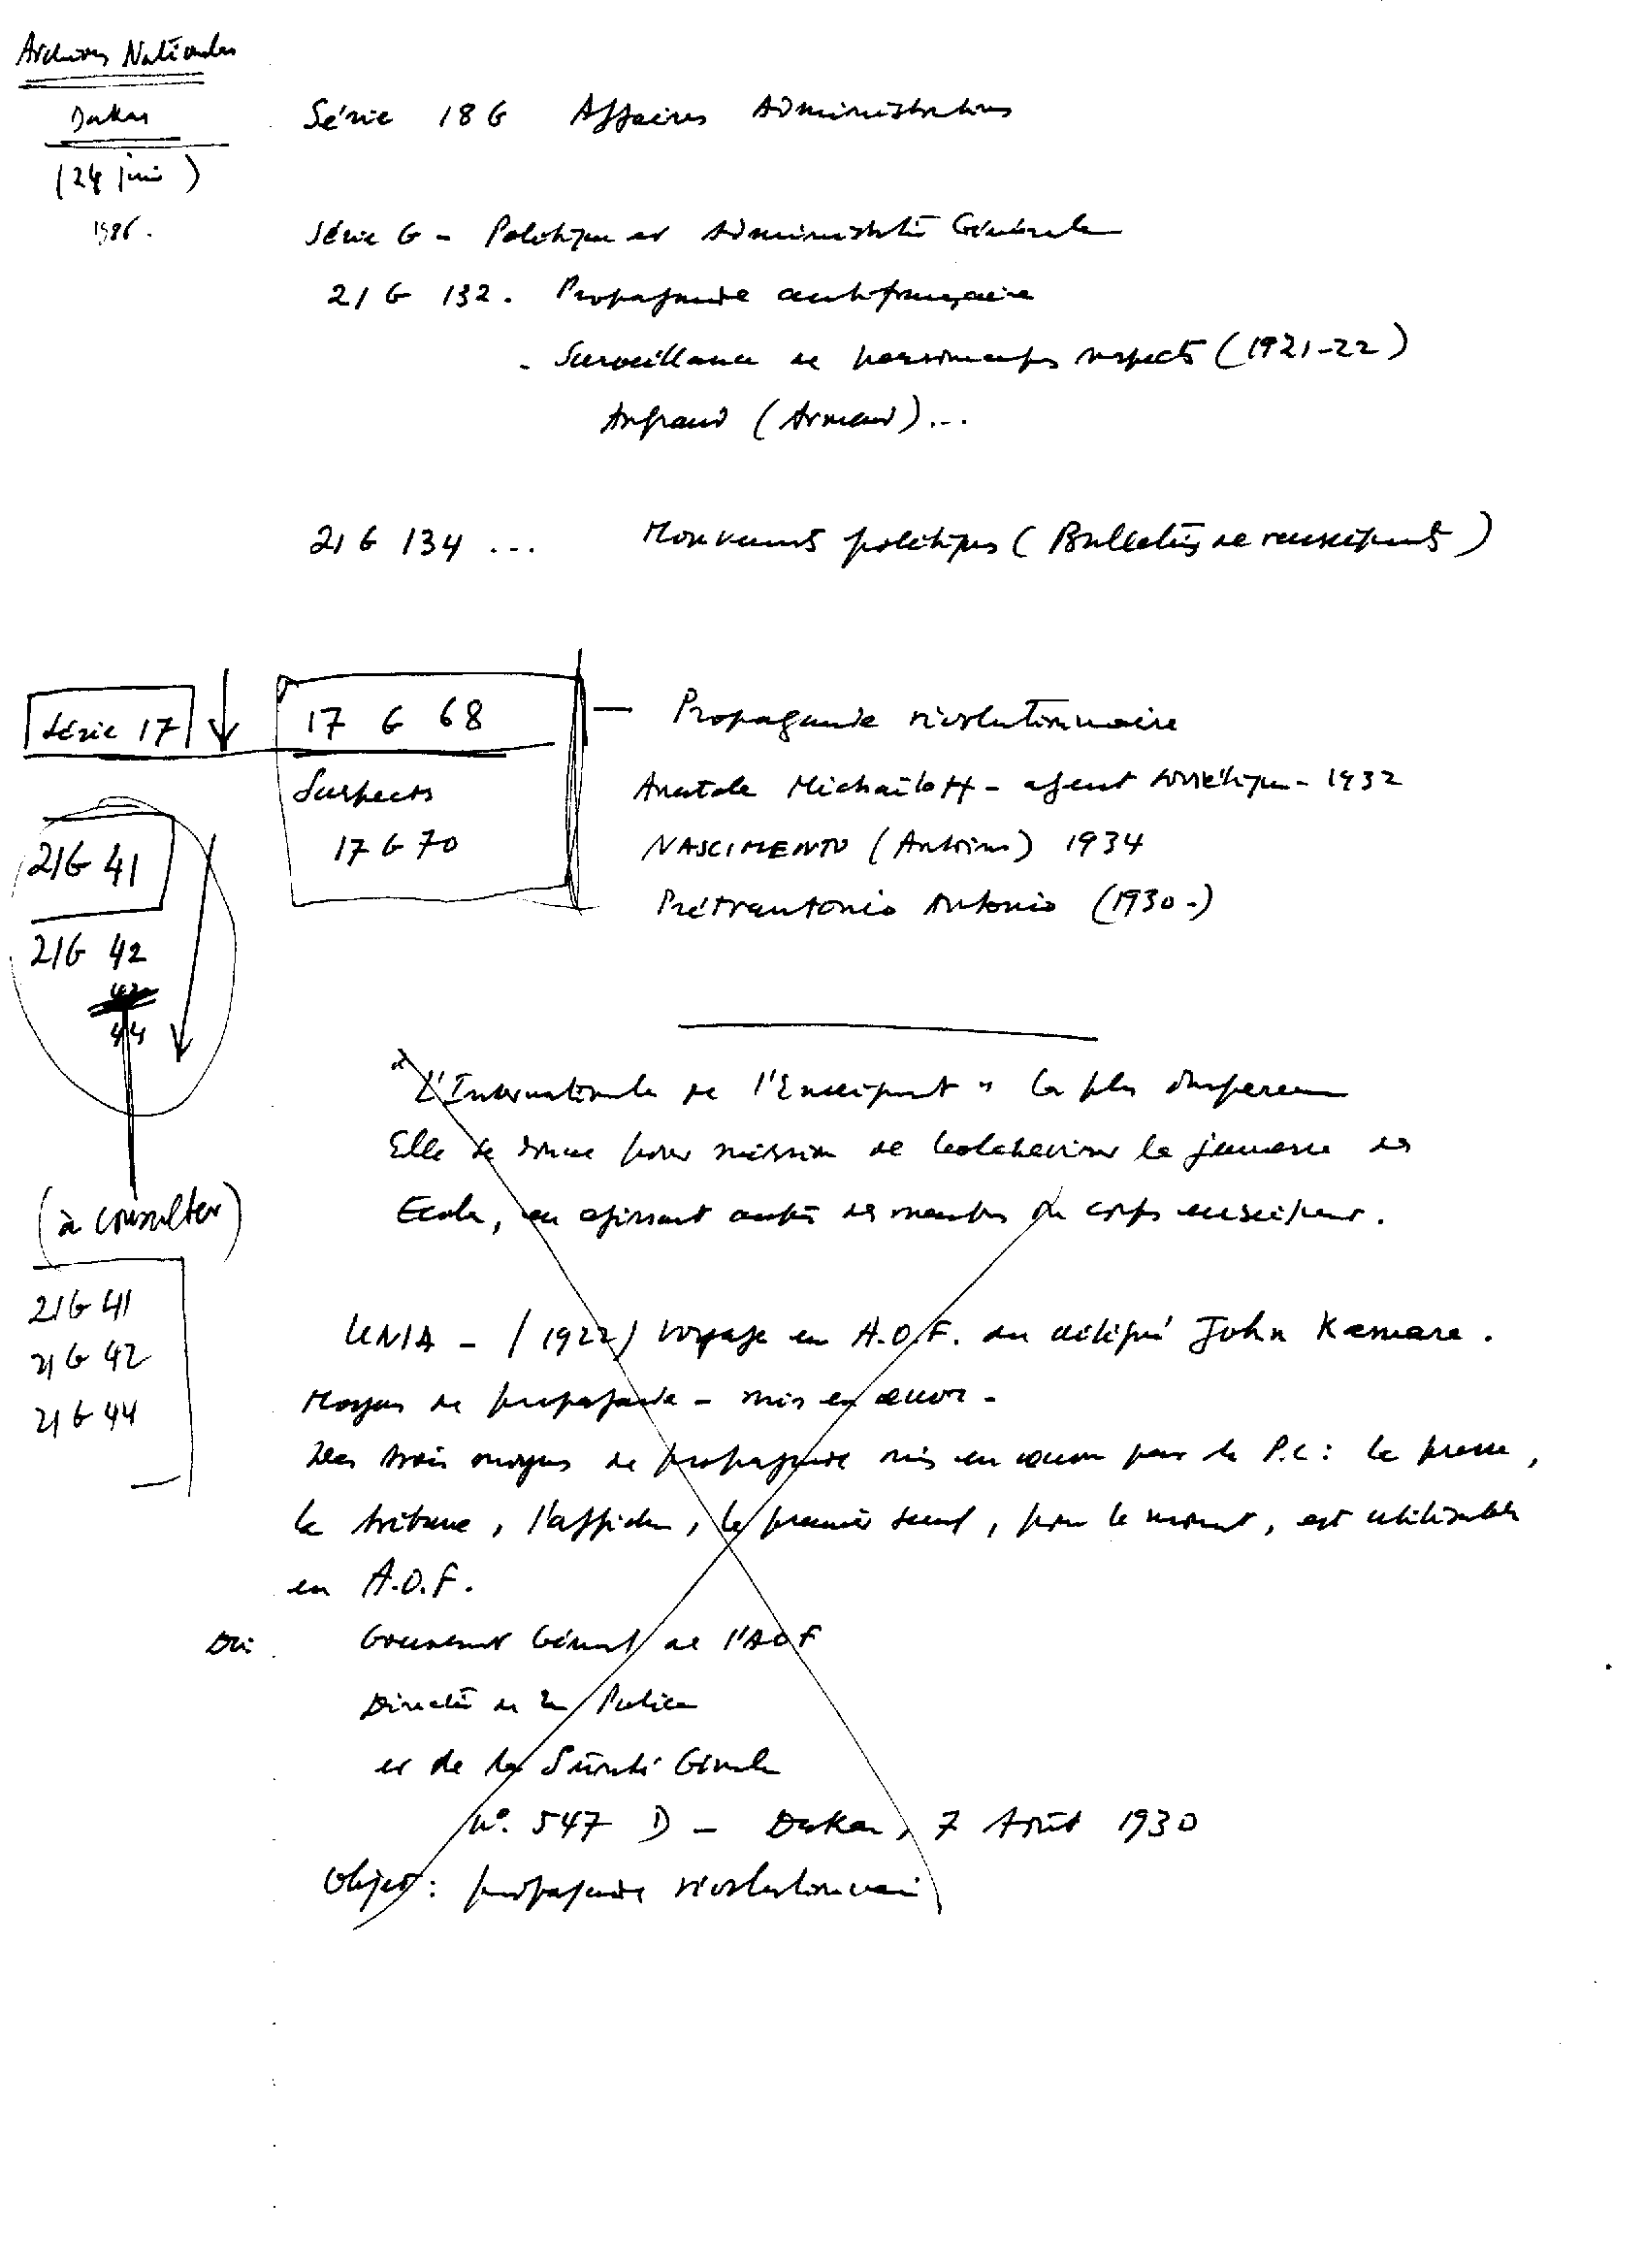 Archives Nationales
Dakar
(24 juin)
1986.
Série 18 G Affaires Administratives
Série G - Politique et Administratiō Générale
21 G 132. Propagande antifrançaise
- Surveillance de personnages suspects (1921-22)
Angrand (Armand)...
21 G 134 ... Mouvements politiques (Bulletins de renseignements)
Série 17
17 G 68 — Propagande révolutionnaire
Suspects
Anatole Michaïloff - agent soviétique - 1932
17 G 70
NASCIMENTO (Antoine) 1934
Piétrantonio Antonio (1930-)
21G 41
21G 42
44
(à consulter)
21G 41
21G 42
21G 44
"L'Internationale de l'Enseignement" la plus dangereuse
Elle se donne pour mission de bolcheviser la jeunesse des
Ecoles, en agissant auprès des membres du corps enseignant.
UNIA - (1922) Voyage en A.O.F. du délégué John Kamara.
Moyens de propagande - mis en œuvre -
Des trois moyens de propagande mis en œuvre par le P.C: la presse,
la tribune, l'affiche, le premier seul, pour le moment, est utilisable
en A.O.F.
Gouvernement Général de l'AOF
Directiō de la Police
et de la Sûreté Générale
N°. 547 D - Dakar, 7 Août 1930
Objet: propagande révolutionnaire